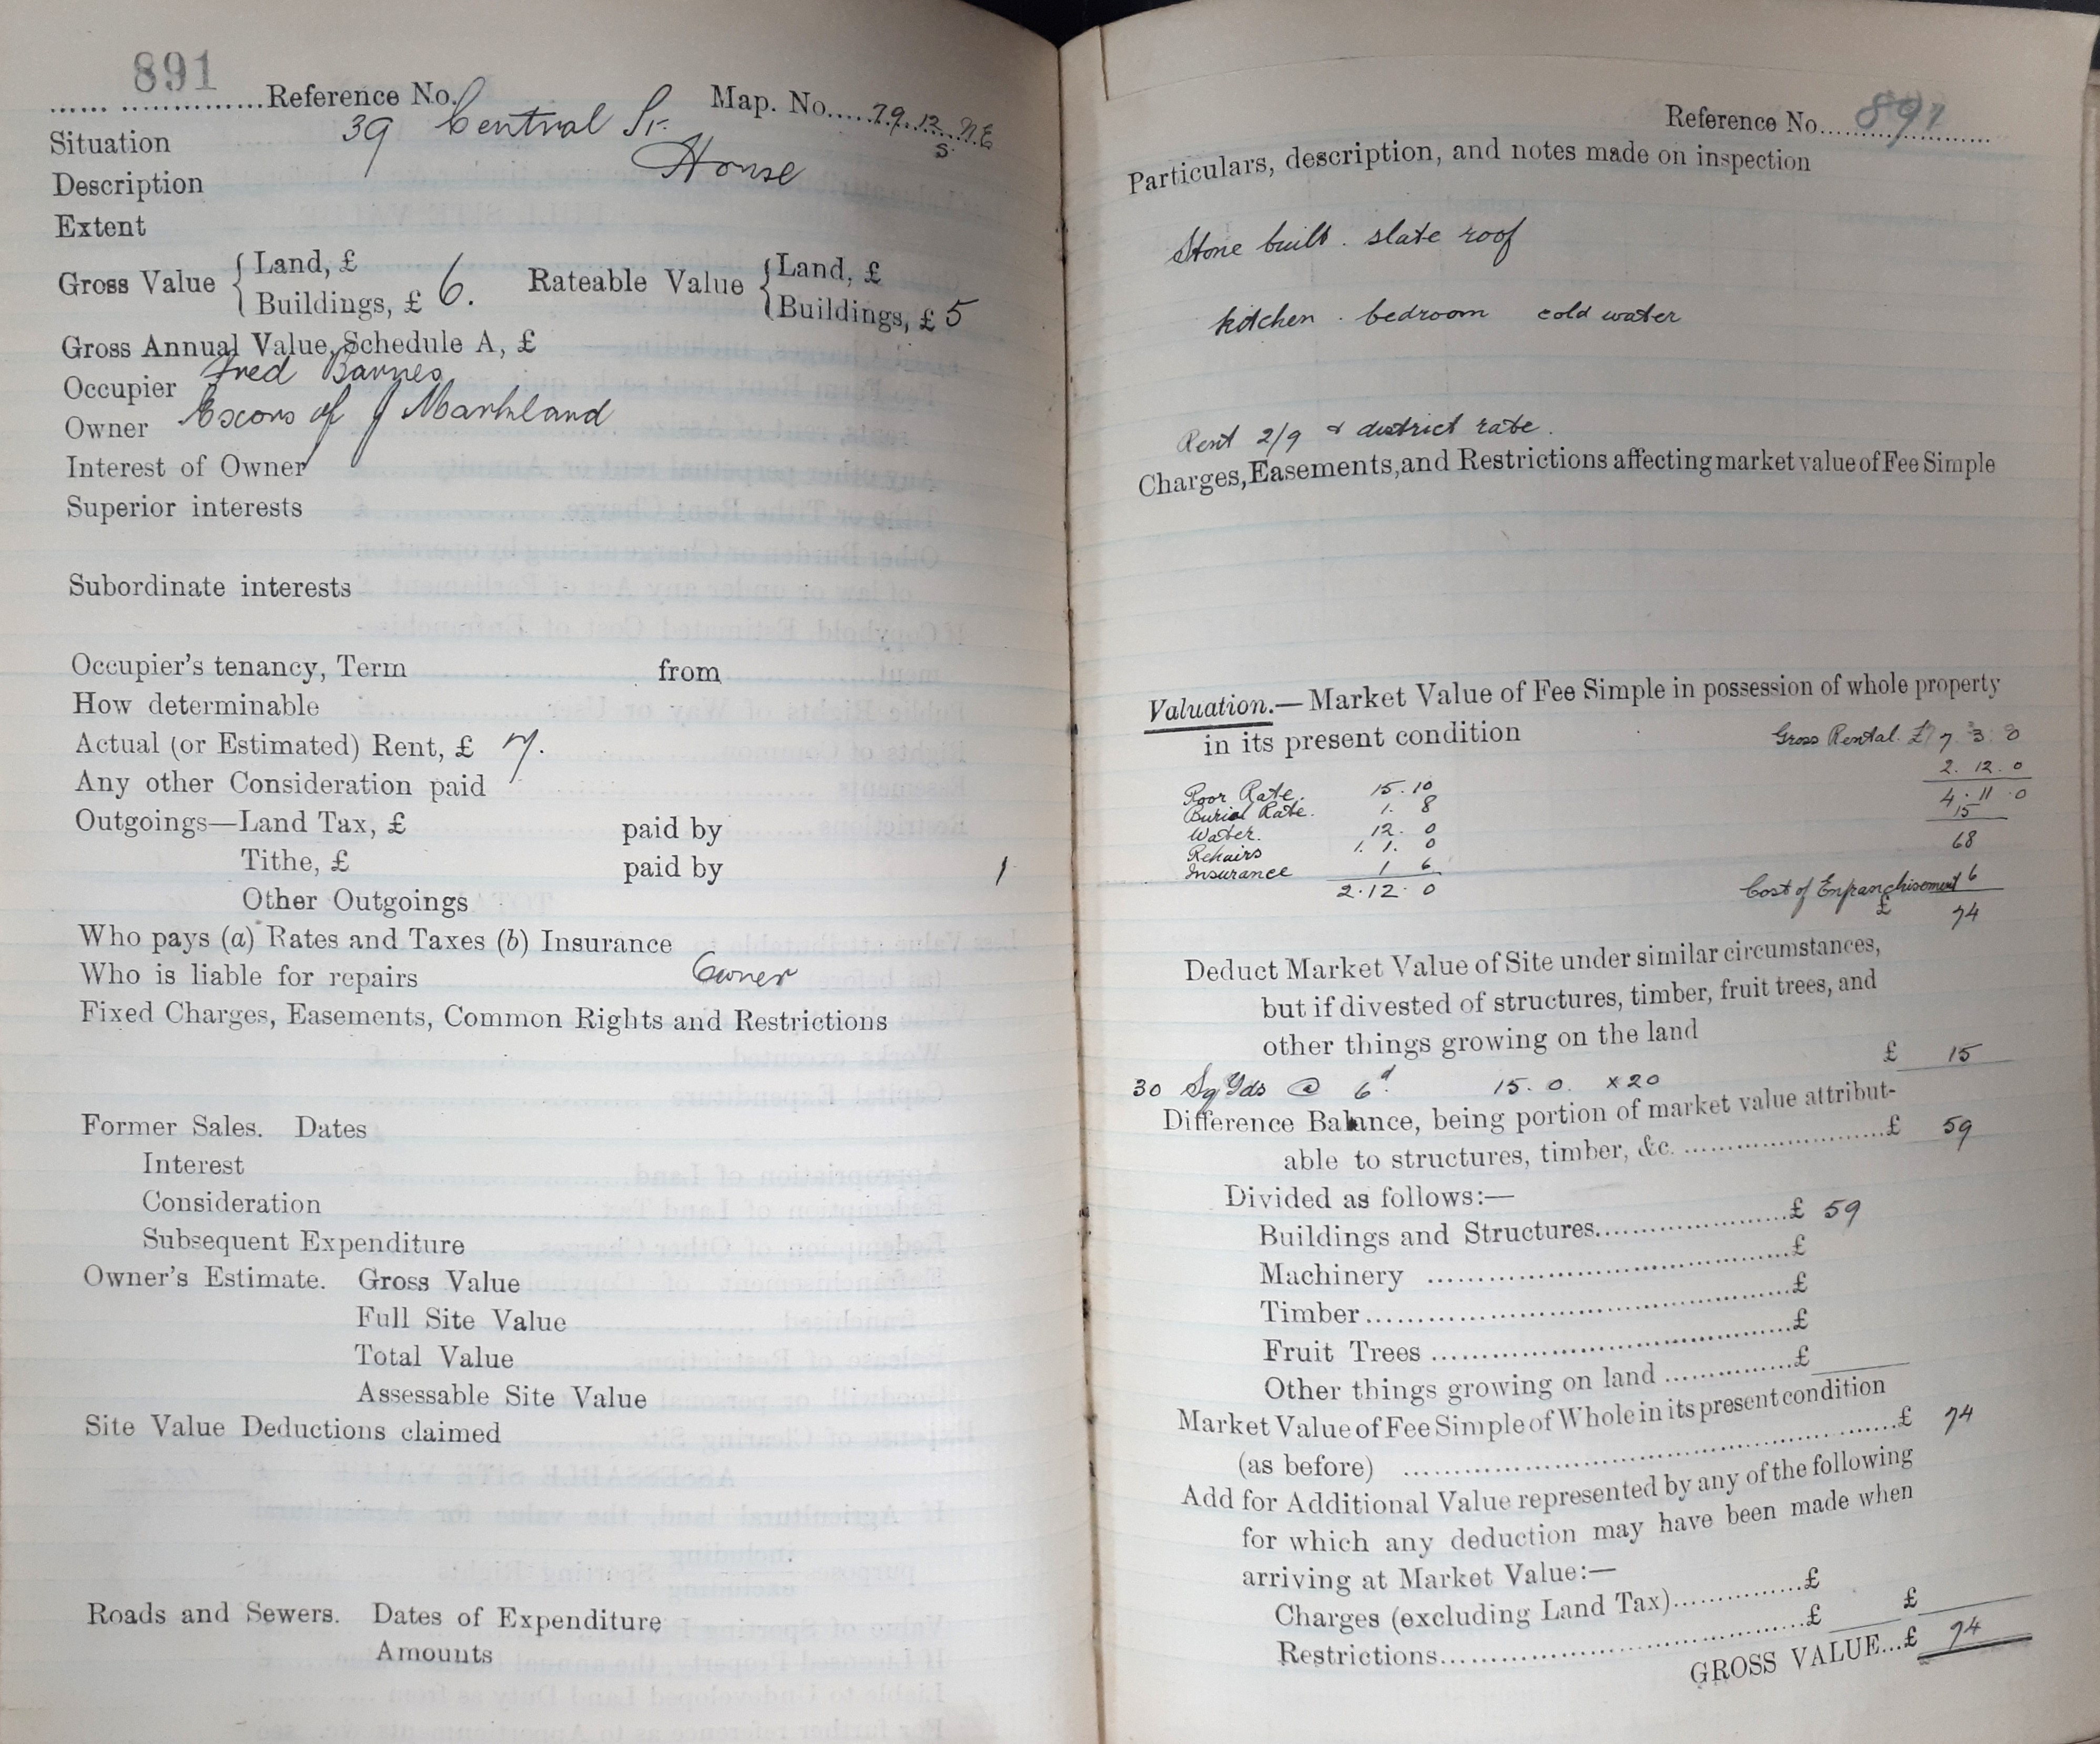 891
...... ..............Reference No.
Map. No.....79.12.NE
S.
Situation 39 Central St.
Description House
Extent
Gross Value { Land, £
Buildings, £ 6.
Rateable Value { Land, £
Buildings, £ 5
Gross Annual Value, Schedule A, £
Occupier Fred Barnes
Owner Excors of J Markland
Interest of Owner
Superior interests
Subordinate interests
Occupier's tenancy, Term from
How determinable
Actual (or Estimated) Rent, £ 7.
Any other Consideration paid
Outgoings—Land Tax, £ paid by
Tithe, £ paid by
Other Outgoings
Who pays (a) Rates and Taxes (b) Insurance
Who is liable for repairs Owner
Fixed Charges, Easements, Common Rights and Restrictions
Former Sales. Dates
Interest
Consideration
Subsequent Expenditure
Owner's Estimate. Gross Value
Full Site Value
Total Value
Assessable Site Value
Site Value Deductions claimed
Roads and Sewers. Dates of Expenditure
Amounts
Reference No....891
Particulars, description, and notes made on inspection
Stone built. slate roof
kitchen . bedroom cold water
Rent 2/9 & district rate.
Charges, Easements, and Restrictions affecting market value of Fee Simple
Valuation.— Market Value of Fee Simple in possession of whole property
in its present condition
Gross Rental. £ 7. 3. 0
2. 12. 0
4. 11. 0
15
68
Cost of Enfranchisement 6
£ 74
Poor Rate. 15. 10
Burial Rate. 1. 8
Water. 12. 0
Repairs 1. 1. 0
Insurance 1 6
2. 12. 0
Deduct Market Value of Site under similar circumstances,
but if divested of structures, timber, fruit trees, and
other things growing on the land
£ 15
30 Sq Yds @ 6d. 15. 0. x 20
Difference Balance, being portion of market value attribut-
able to structures, timber, &c. ........................£ 59
Divided as follows:—
Buildings and Structures......................£ 59
Machinery ......................................£
Timber.............................................£
Fruit Trees ......................................£
Other things growing on land ..............£
Market Value of Fee Simple of Whole in its present condition
(as before) ..................................................£ 74
Add for Additional Value represented by any of the following
for which any deduction may have been made when
arriving at Market Value:—
Charges (excluding Land Tax)..............£
Restrictions......................................£ £
GROSS VALUE...£ 74